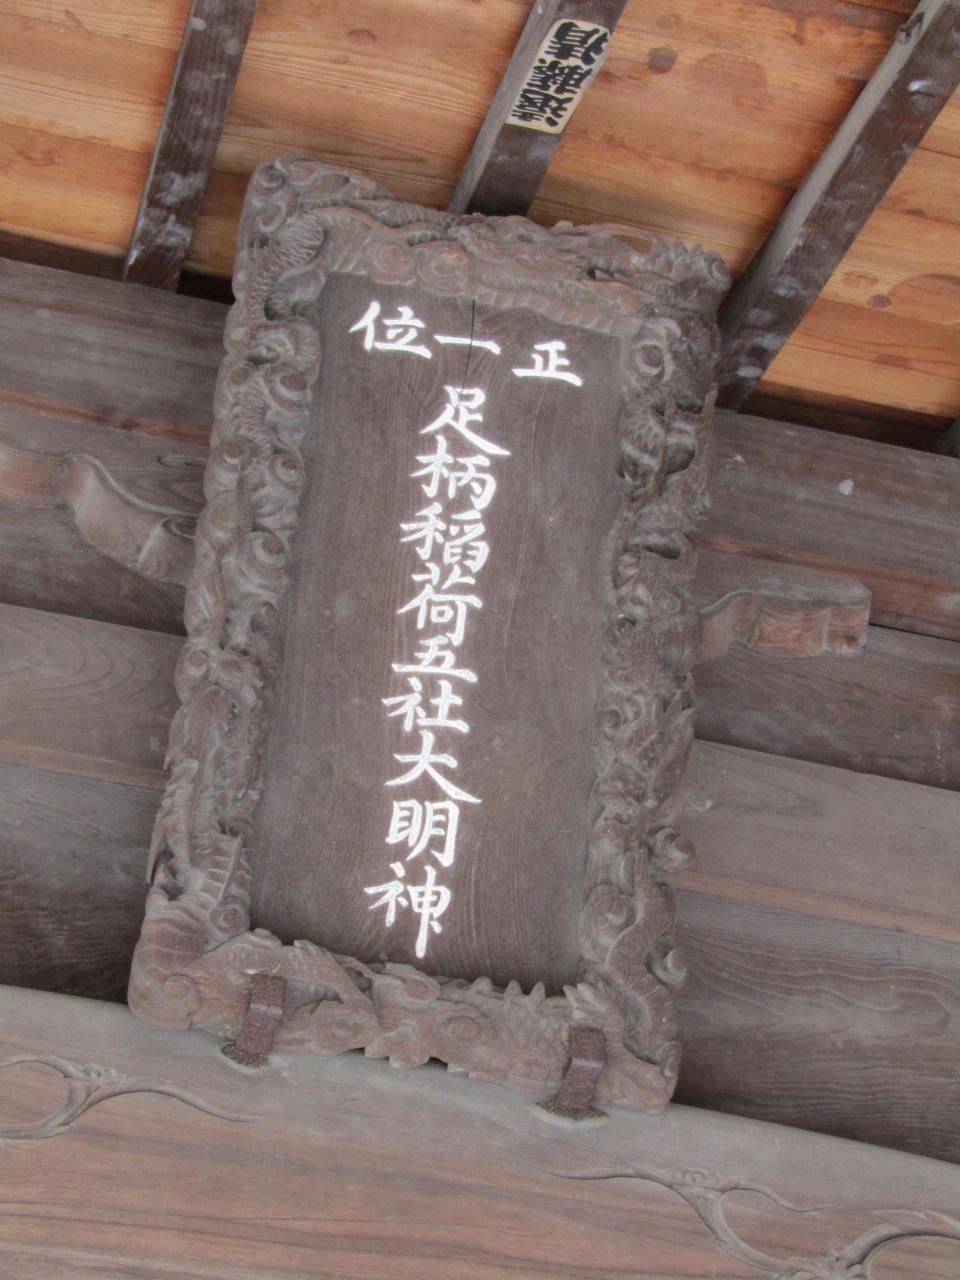 正一位
足柄稲荷五社大明神
遠藤清